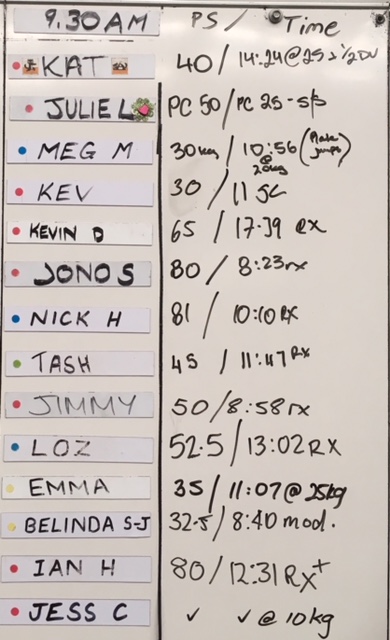 9.30AM PS / Time
KAT 40 / 14:24@25 s 1/2DU
JULIE L PC 50 / PC 25 - s/s
MEG M 30kg / 10:56 (Plate jumps)
@ 20kg
KEV 30 / 11 sc
KEVIN D 65 / 17.39 RX
JONO S 80 / 8:23rx
NICK H 81 / 10:10 RX
TASH 45 / 11:47 RX
JIMMY 50 / 8:58 rx
LOZ 52.5 / 13:02 RX
EMMA 35 / 11:07@25kg
BELINDA S-J 32.5 / 8:40 mod.
IAN H 80 / 12:31 RX+
JESS C ✓ ✓ @ 10kg